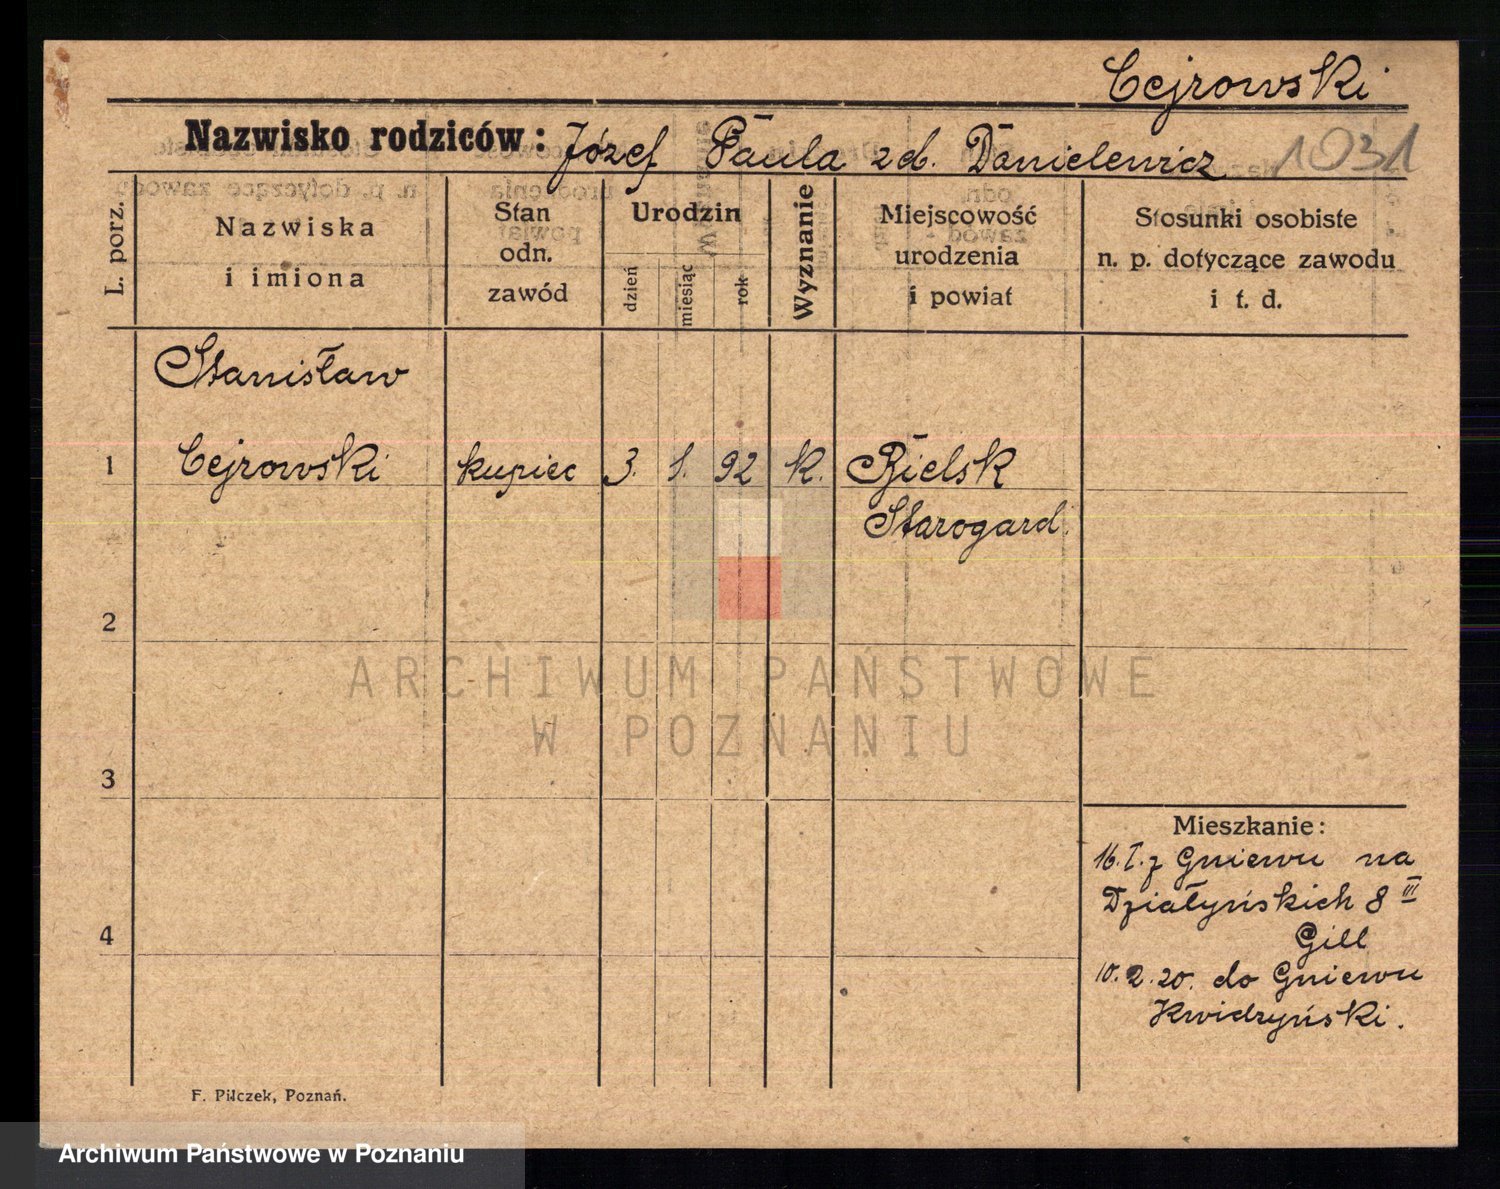 Cejrowski
Nazwisko rodziców: Józef Paula zd. Danielewicz 1031
L. porz.
Nazwiska
i imiona
Stan
odn.
zawód
Urodzin
dzień
miesiąc
rok
Wyznanie
Miejscowość
urodzenia
i powiat
Stosunki osobiste
n. p. dotyczące zawodu
i t. d.
Stanisław
1 Cejrowski kupiec 3. 1. 92 k. Bielsk
Starogard.
2
3
4
Mieszkanie:
16. I. z Gniewu na
Działyńskich 8 III
Gill
10. 2. 20. do Gniewu
Kwidzyński.
F. Pilczek, Poznań.
ARCHIWUM PAŃSTWOWE
W POZNANIU
Archiwum Państwowe w Poznaniu